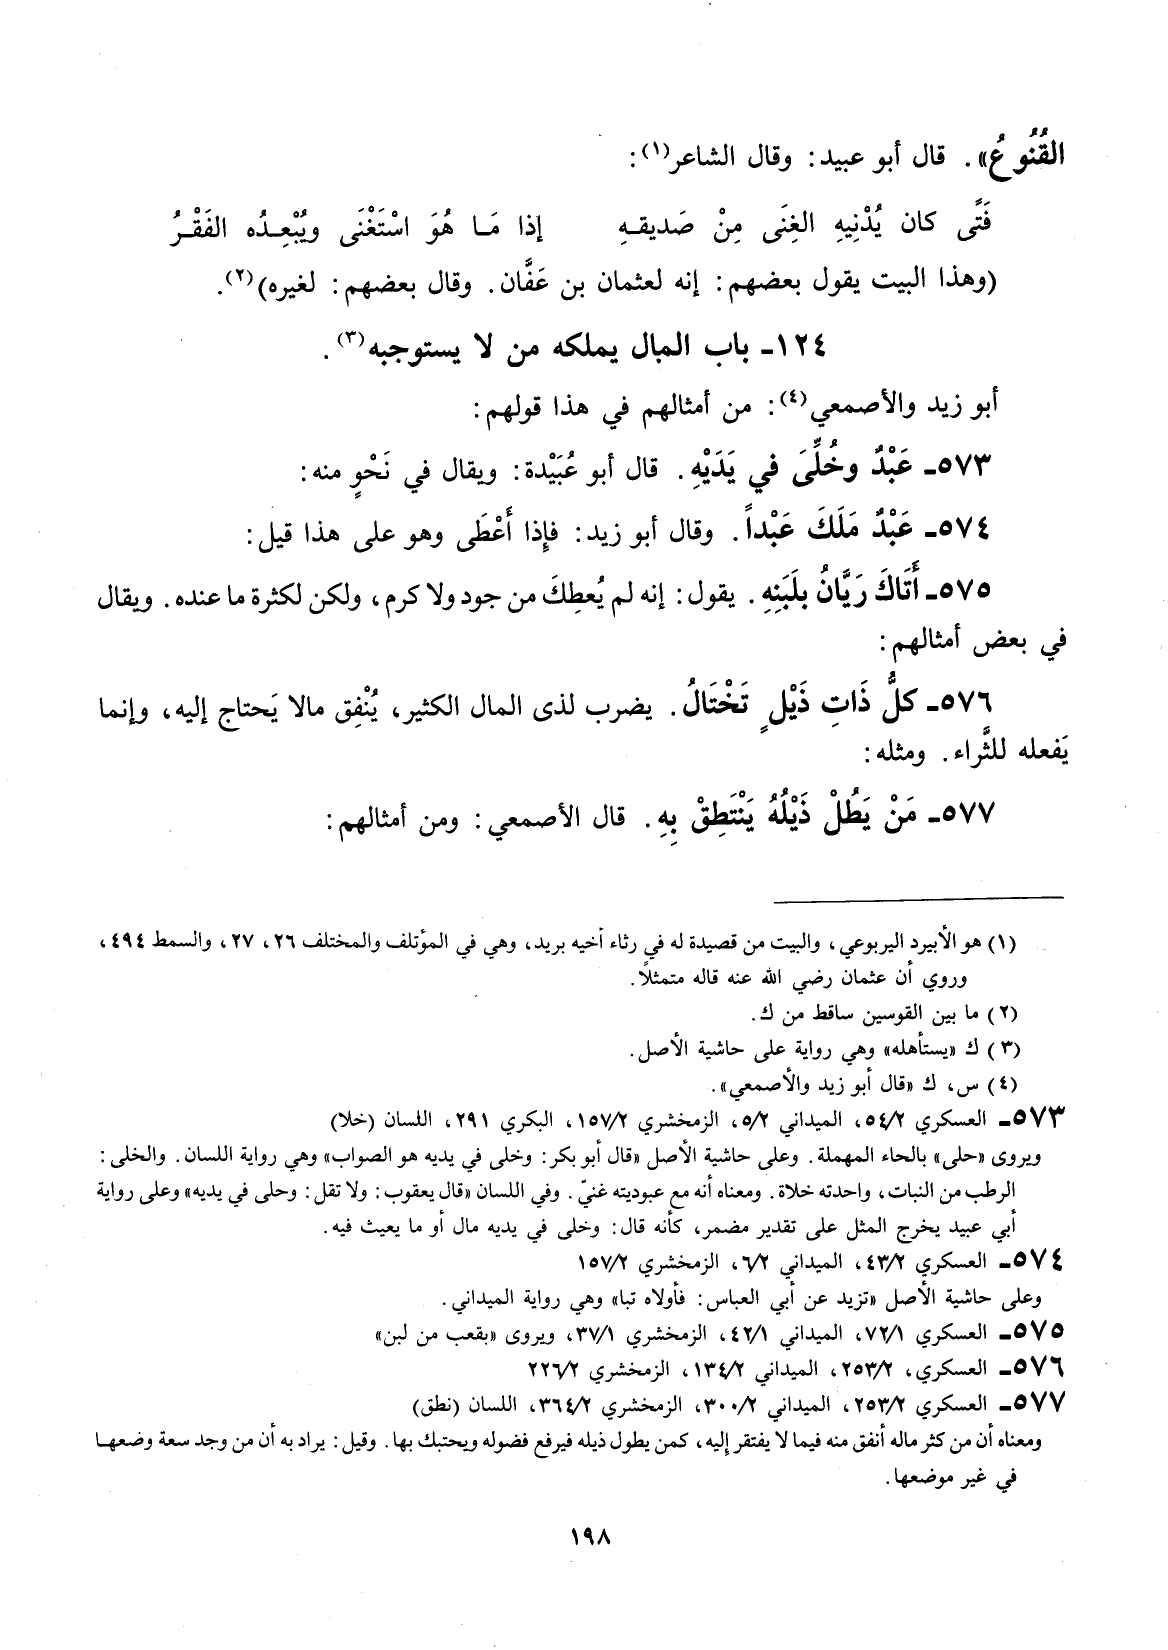 القُنُوعُ». قال أبو عبيد: وقال الشاعر(١):
فَتًى كان يُدْنِيهِ الغِنَى مِنْ صَديقـهِ إذا مَـا هُوَ اسْتَغْنَى ويُبْعِـدُه الفَقْـرُ
(وهذا البيت يقول بعضهم: إنه لعثمان بن عَفَّان. وقال بعضهم: لغيره)(٢).
١٢٤ـ باب المال يملكه من لا يستوجبه(٣).
أبو زيد والأصمعي(٤): من أمثالهم في هذا قولهم:
٥٧٣ـ عَبْدٌ وخُلِّىَ في يَدَيْهِ. قال أبو عُبَيْدة: ويقال في نَحْوٍ منه:
٥٧٤ـ عَبْدٌ مَلَكَ عَبْداً. وقال أبو زيد: فإِذا أَعْطَى وهو على هذا قيل:
٥٧٥ـ أَتَاكَ رَيَّانُ بلَبَنِهِ. يقول: إنه لم يُعطِكَ من جود ولا كرم، ولكن لكثرة ما عنده. ويقال
في بعض أمثالهم:
٥٧٦ـ كلُّ ذَاتِ ذَيْلٍ تَخْتَالُ. يضرب لذى المال الكثير، يُنْفِق مالا يَحتاج إليه، وإنما
يَفعله للثَّراء. ومثله:
٥٧٧ـ مَنْ يَطُلْ ذَيْلُهُ يَنْتَطِقْ بِهِ. قال الأصمعي: ومن أمثالهم:
(١) هو الأبيرد اليربوعي، والبيت من قصيدة له في رثاء أخيه بريد، وهي في المؤتلف والمختلف ٢٦، ٢٧، والسمط ٤٩٤،
وروي أن عثمان رضي الله عنه قاله متمثلاً.
(٢) ما بين القوسين ساقط من ك.
(٣) ك «يستأهله» وهي رواية على حاشية الأصل.
(٤) س، ك «قال أبو زيد والأصمعي».
٥٧٣ـ العسكري ٥٤/٢، الميداني ٥/٢، الزمخشري ١٥٧/٢، البكري ٢٩١، اللسان (خلا)
ويروى «حلى» بالحاء المهملة. وعلى حاشية الأصل «قال أبو بكر: وخلى في يديه هو الصواب» وهي رواية اللسان. والخلى:
الرطب من النبات، واحدته خلاة. ومعناه أنه مع عبوديته غنيّ. وفي اللسان «قال يعقوب: ولا تقل: وحلى في يديه» وعلى رواية
أبي عبيد يخرج المثل على تقدير مضمر، كأنه قال: وخلى في يديه مال أو ما يعيث فيه.
٥٧٤ـ العسكري ٤٣/٢، الميداني ٦/٢، الزمخشري ١٥٧/٢
وعلى حاشية الأصل «تزيد عن أبي العباس: فأولاه تبا» وهي رواية الميداني.
٥٧٥ـ العسكري ٧٢/١، الميداني ٤٢/١، الزمخشري ٣٧/١، ويروى «بقعب من لبن»
٥٧٦ـ العسكري، ٢٥٣/٢، الميداني ١٣٤/٢، الزمخشري ٢٢٦/٢
٥٧٧ـ العسكري ٢٥٣/٢، الميداني ٣٠٠/٢، الزمخشري ٣٦٤/٢، اللسان (نطق)
ومعناه أن من كثر ماله أنفق منه فيما لا يفتقر إليه، كمن يطول ذيله فيرفع فضوله ويحتبك بها. وقيل: يراد به أن من وجد سعة وضعهـا
في غير موضعها.
١٩٨